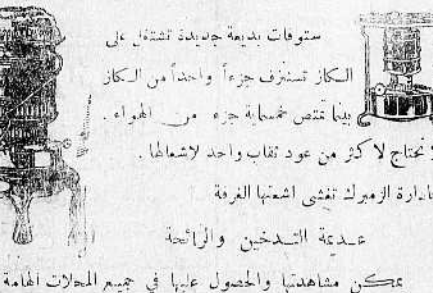 ستوفات بديعة جديدة تشتغل على
الكاز تستنزف جزءاً واحداً من الكاز
بينما تمتص خمسماية جزء من الهواء .
لا تحتاج لاكثر من عود ثقاب واحد لاشعالها .
بادارة الزمبرك تغشى اشعتها الغرفة
عديمة التدخين والرائحة
يمكن مشاهدتها والحصول عليها في جميع المحلات الهامة